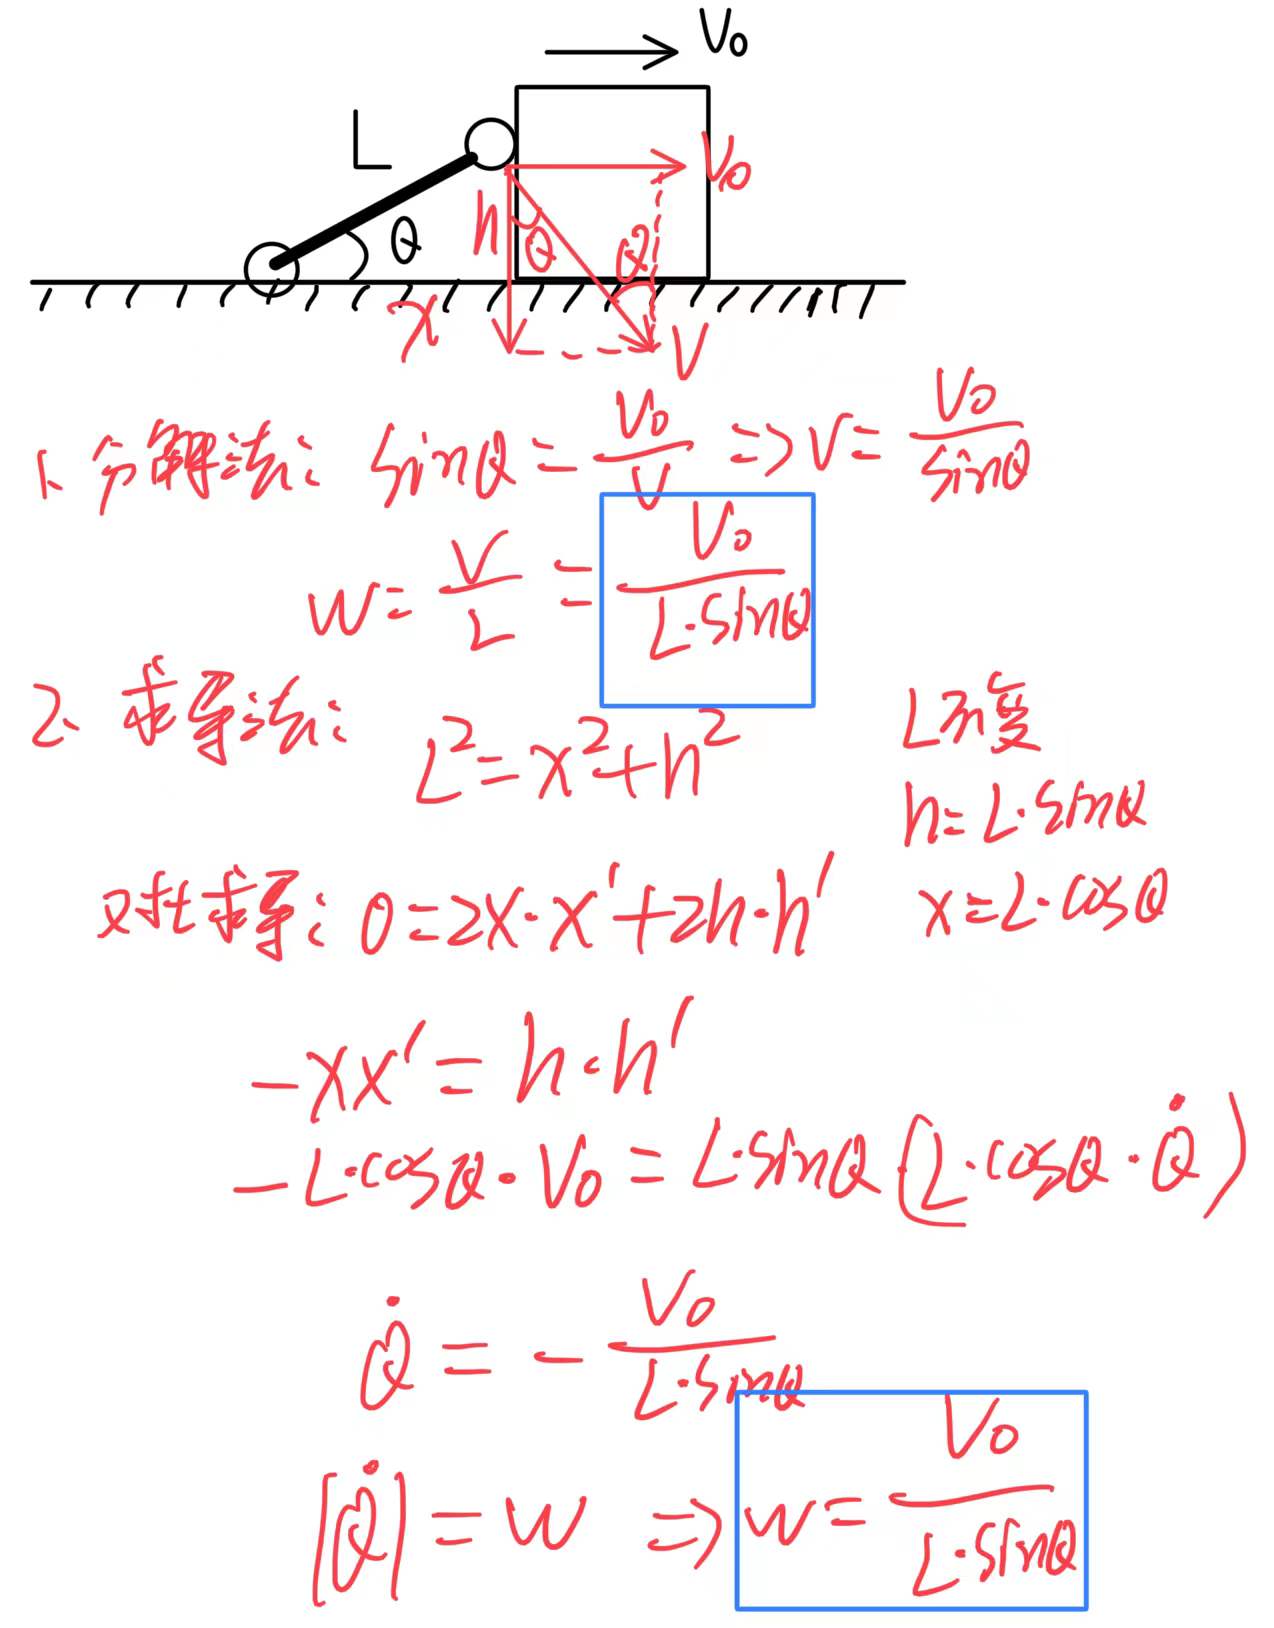 V₀
L
V₀
h
θ
θ
θ
x
V
1. 分解法: sinθ = V₀/V => V = V₀/sinθ
w = V/L = V₀/(L·sinθ)
2. 求导法: L² = x² + h²
L不变
h = L·sinθ
x = L·cosθ
对t求导: 0 = 2x·x′ + 2h·h′
-xx′ = h·h′
-L·cosθ·V₀ = L·sinθ·(L·cosθ·θ̇)
θ̇ = -V₀/(L·sinθ)
|θ̇| = w => w = V₀/(L·sinθ)